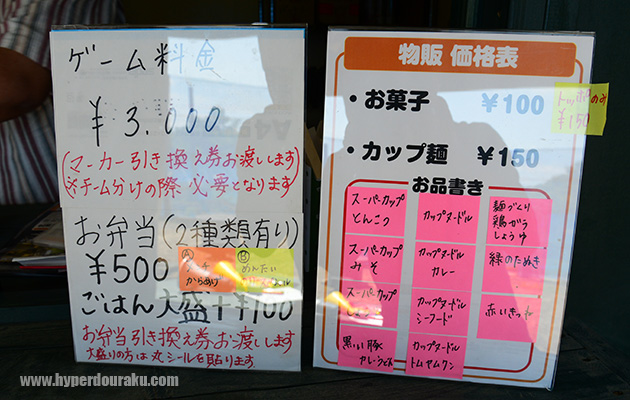 ゲーム料金
¥3,000
(マーカー引き換え券お渡しします)
※チーム分けの際必要となります
お弁当(2種類有り)
¥500
Ⓐ
からあげ
Ⓑ
めんたい
ごはん大盛++¥100
お弁当引き換え券お渡しします
大盛りの方は丸シールを貼ります。
物販 価格表
・お菓子 ¥100
トッポのみ
¥150
・カップ麺 ¥150
お品書き
スーパーカップ
とんこつ
スーパーカップ
みそ
スーパーカップ
黒い豚
カレーうどん
カップヌードル
カップヌードル
カレー
カップヌードル
シーフード
カップヌードル
トムヤムクン
麺づくり
鶏がら
しょうゆ
緑のたぬき
赤いきつね
www.hyperdouraku.com